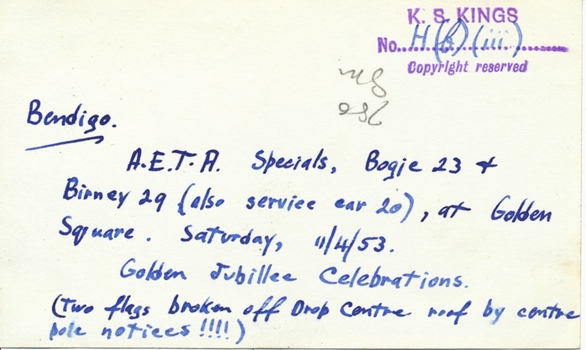 K. S. KINGS
No. H(b)(iii)
Copyright reserved
Bendigo.
A.E.T.A. Specials, Bogie 23 &
Birney 29 (also service car 20), at Golden
Square. Saturday, 11/4/53.
Golden Jubillee Celebrations.
(Two flags broken off Drop Centre roof by centre
pole notices!!!!)